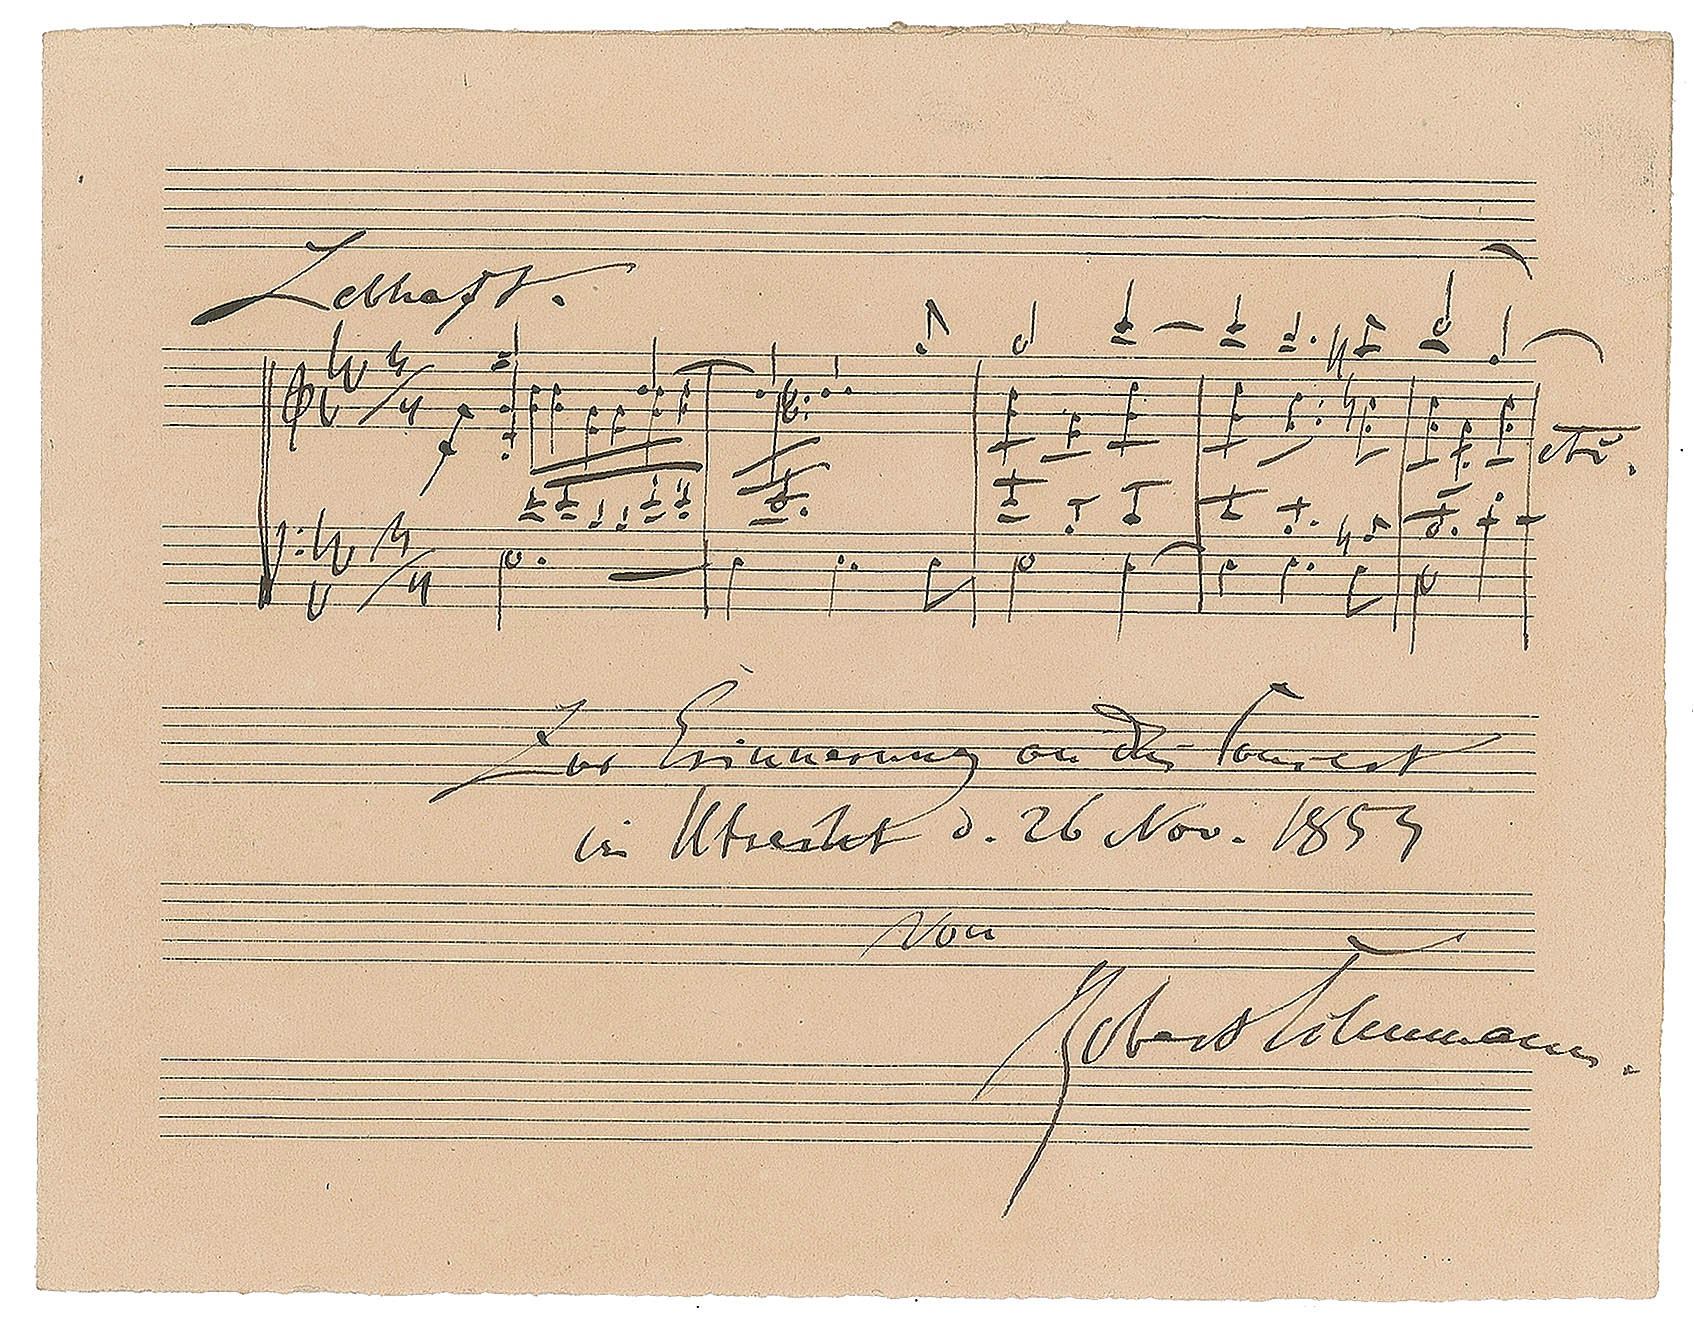 Lebhaft.
etc.
Zur Erinnerung an das Concert
in Utrecht d. 26 Nov. 1853
von
Robert Schumann.